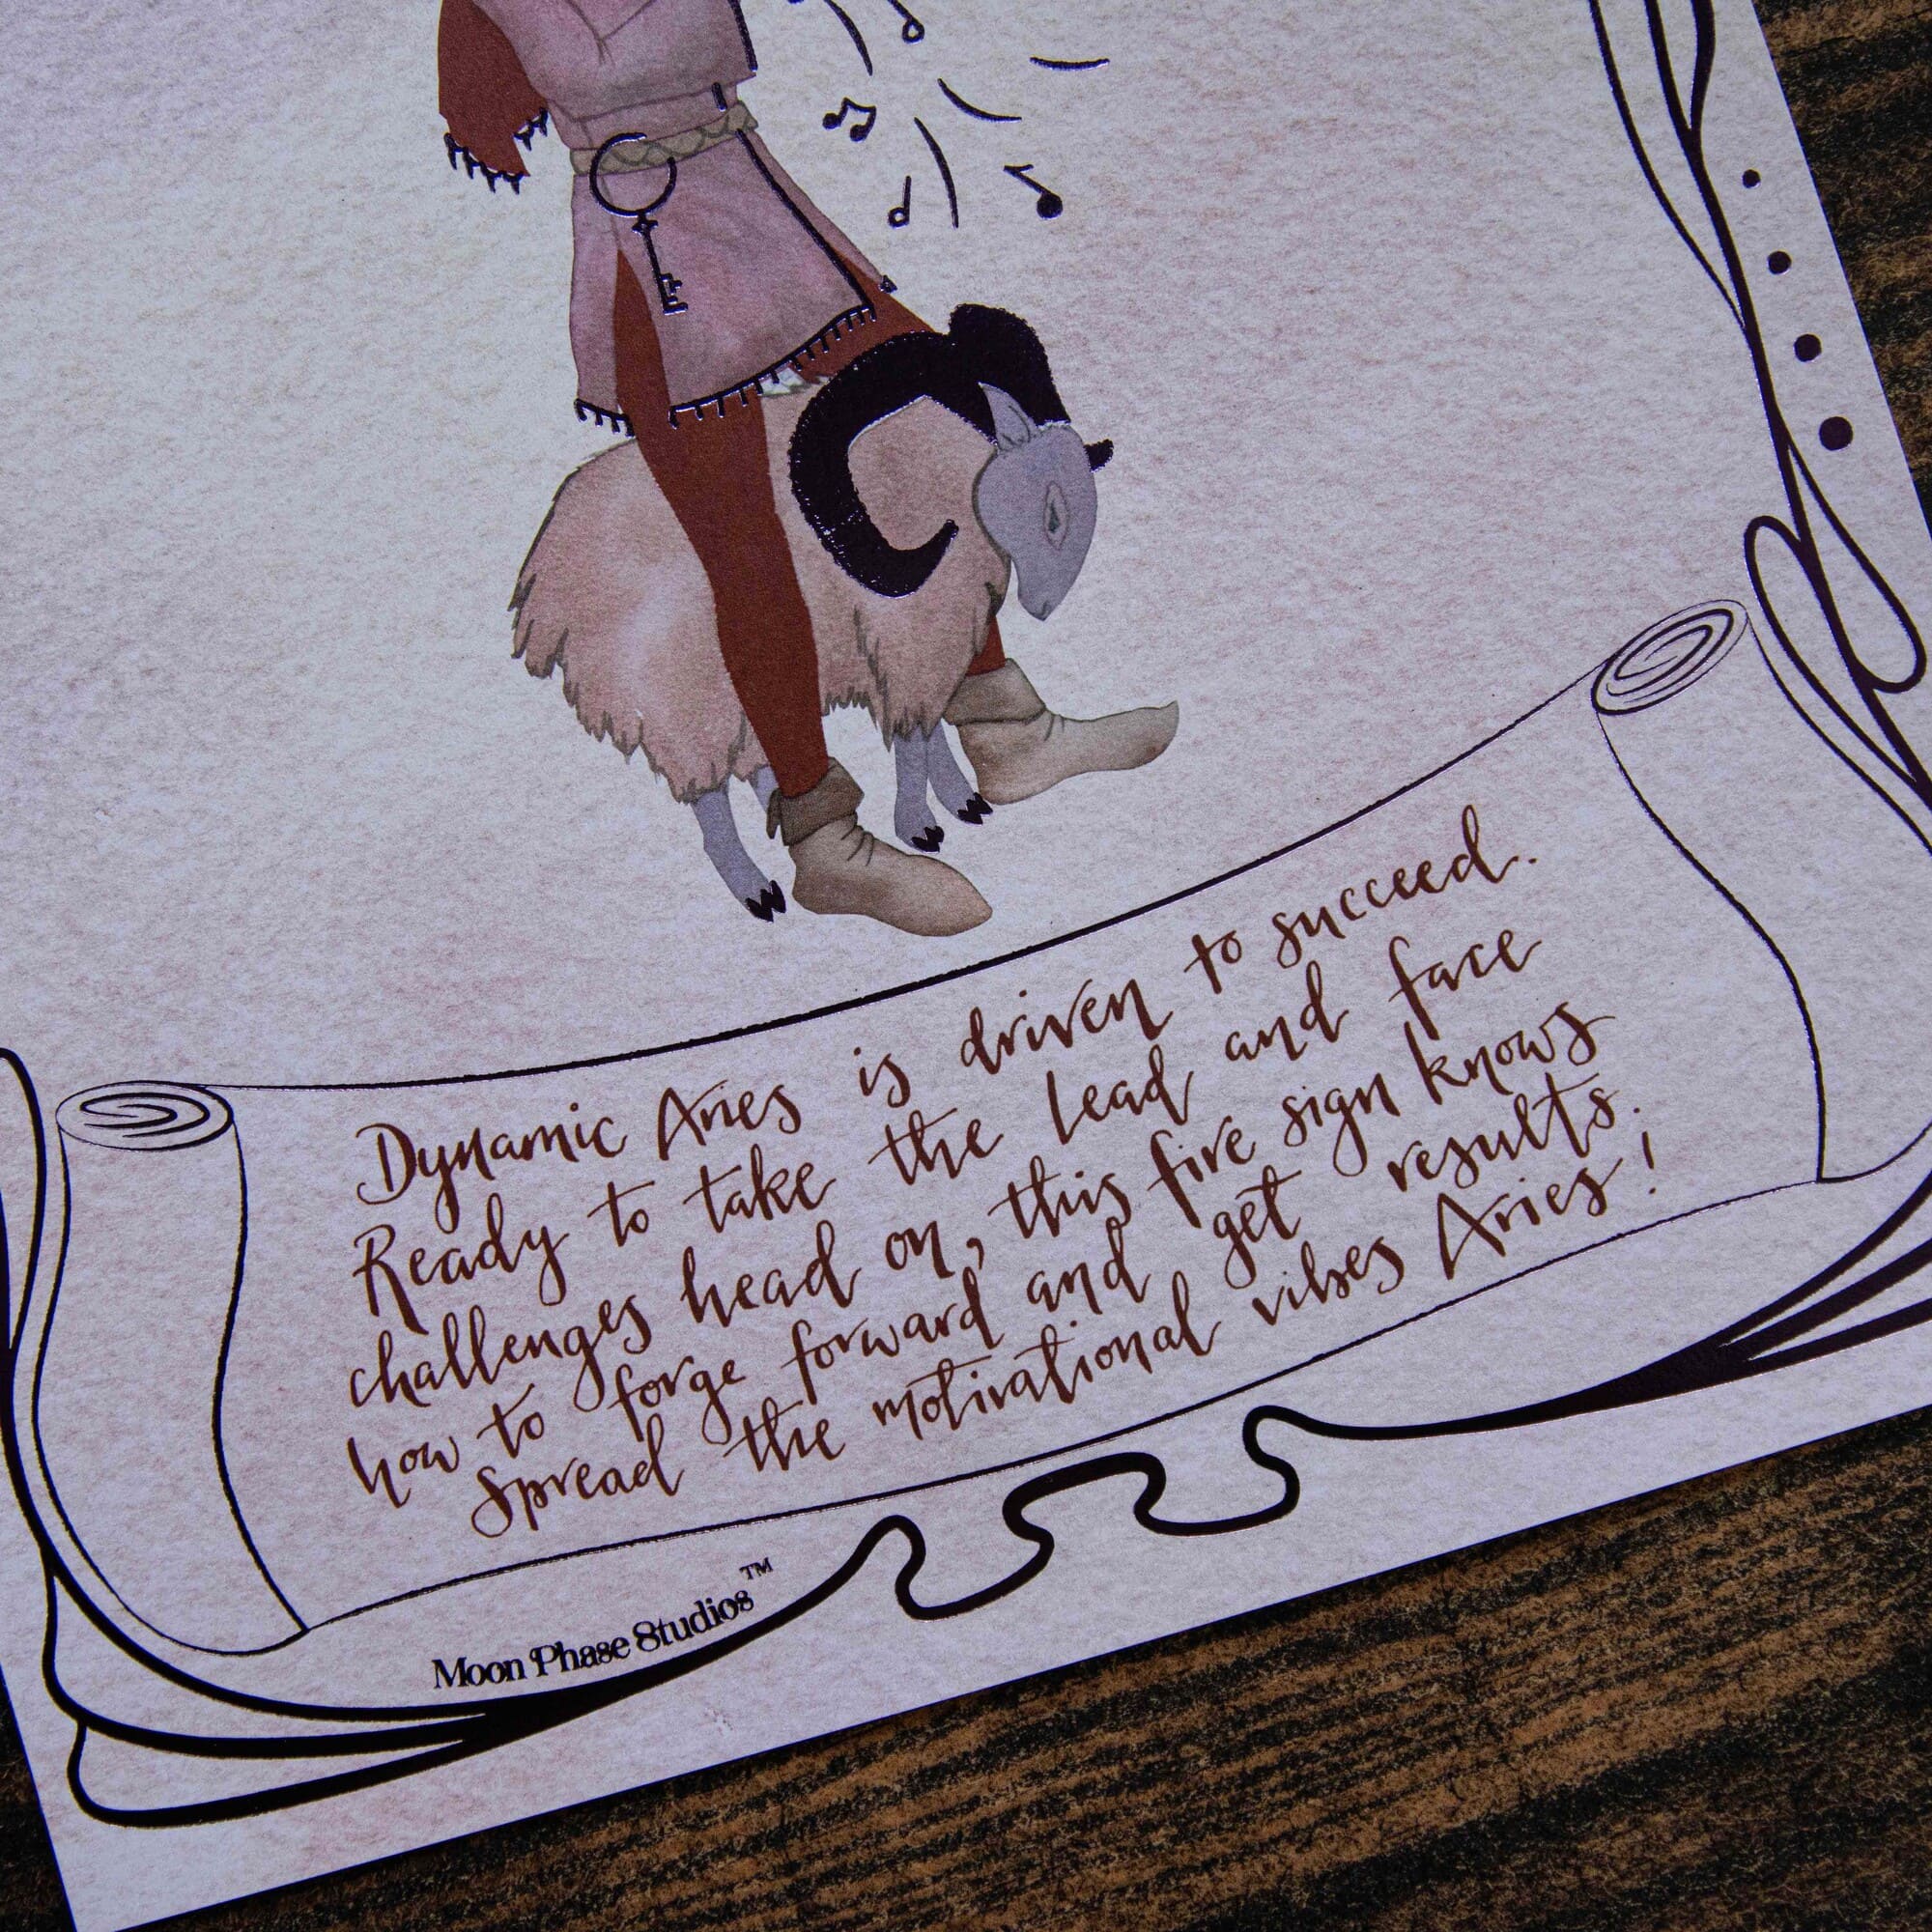 Dynamic Aries is driven to succeed.
Ready to take the lead and face
challenges head on, this fire sign knows
how to forge forward and get results.
spread the motivational vibes Aries!
Moon Phase Studios™